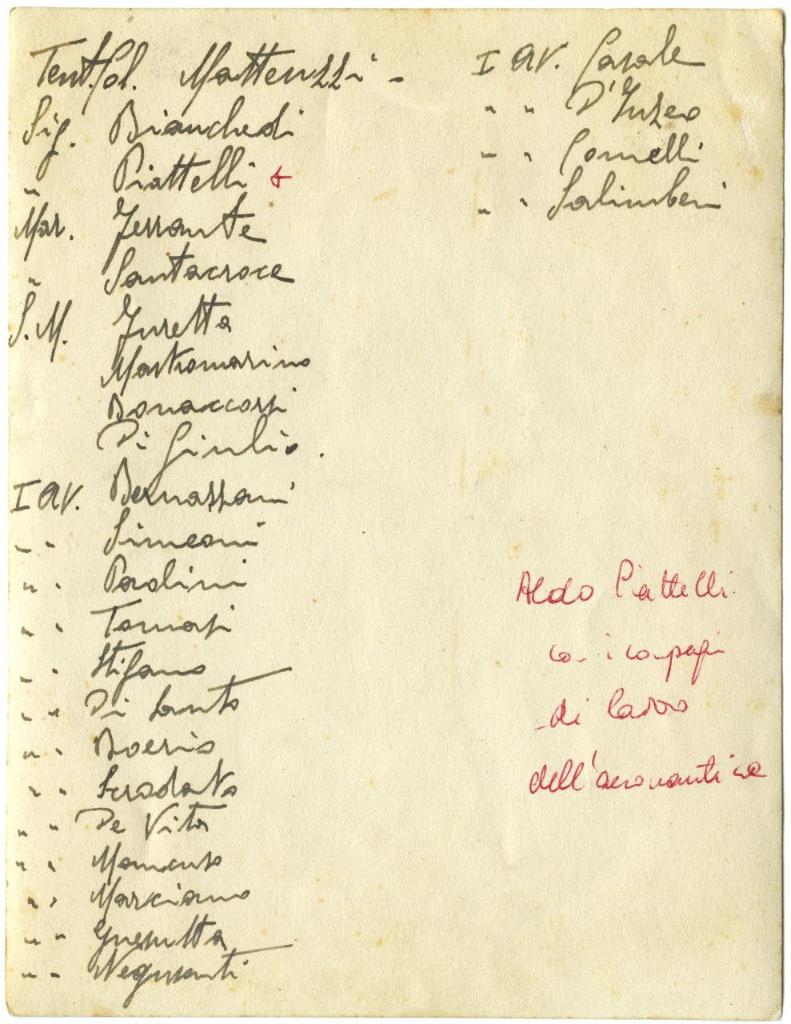 Ten. Col. Matteuzzi -
Sig. Bianchedi
" Piattelli +
Mar. Ferrante
" Santacroce
S.M. Furetta
Mastromarino
Bonaccorsi
Di Giulio.
I av. Bernazzani
" " Simeoni
" " Paolini
" " Tomasi
" " Stifano
" " Di Santo
" " Boerio
" "
" " De Vita
" "
" " Marciano
" "
" " Negusanti
I av. Casale
" " D'Inzeo
" " Comelli
" " Salimbeni
Aldo Piattelli
con i compagni
di lavoro
dell'aeronautica